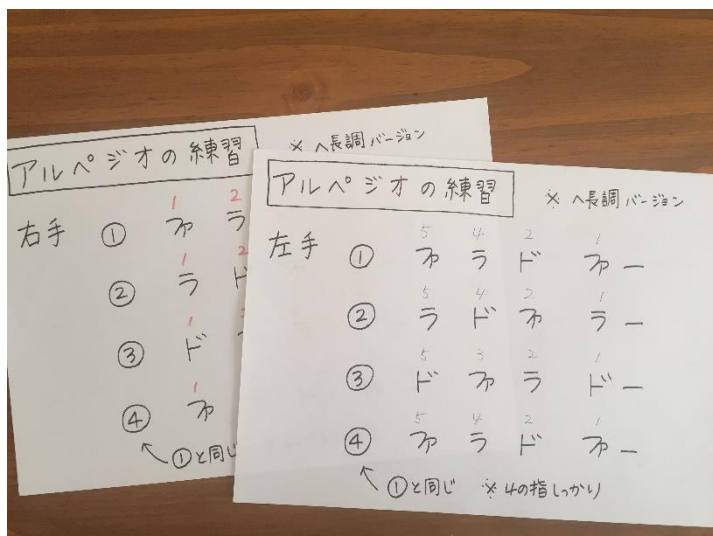 アルペジオの練習 ※ ヘ長調バージョン
右手 ① 1ファ 2ラ
② 1ラ 2ド
③ 1ド
④ 1ファ
↖①と同じ
アルペジオの練習 ※ ヘ長調バージョン
5 4 2 1
左手 ① ファ ラ ド ファ ー
5 4 2 1
② ラ ド ファ ラ ー
5 3 2 1
③ ド ファ ラ ド ー
5 4 2 1
④ ファ ラ ド ファ ー
↖①と同じ ※4の指しっかり